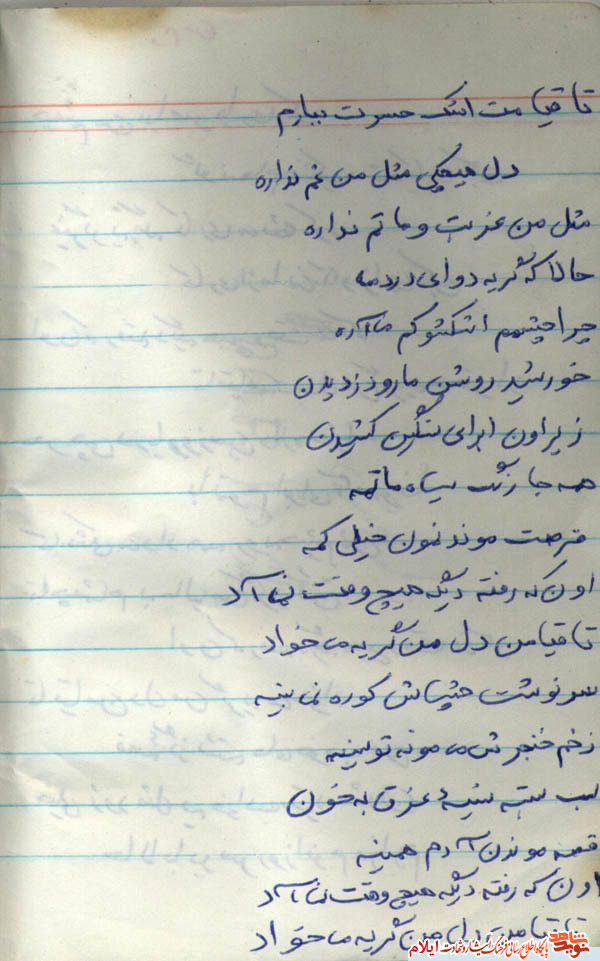 تا قیامت اشک حسرت ببارم
دل هیچکی مثل من غم نداره
مثل من غربت و ماتم نداره
حالا که گریه دوای دردمه
چرا چشمم اشکشو کم میاره
خورشید روشن ما رو دزدیدن
زیر اون ابرای سنگین کشیدن
همه جا رنگ سیاه ماتمه
فرصت موندنمون خیلی کمه
اون که رفته دیگه هیچ وقت نمی آد
تا قیامت دل من گریه می خواد
سرنوشت چشاش کوره نمی بینه
زخم خنجرش می مونه تو سینه
لب بسته سینه غرق به خون
قصه موندن آدم همینه
اون که رفته دیگه هیچ وقت نمی آد
تا قیامت دل من گریه می خواد
نوید شاهد پایگاه اطلاع رسانی فرهنگ ایثار و شهادت ایلام